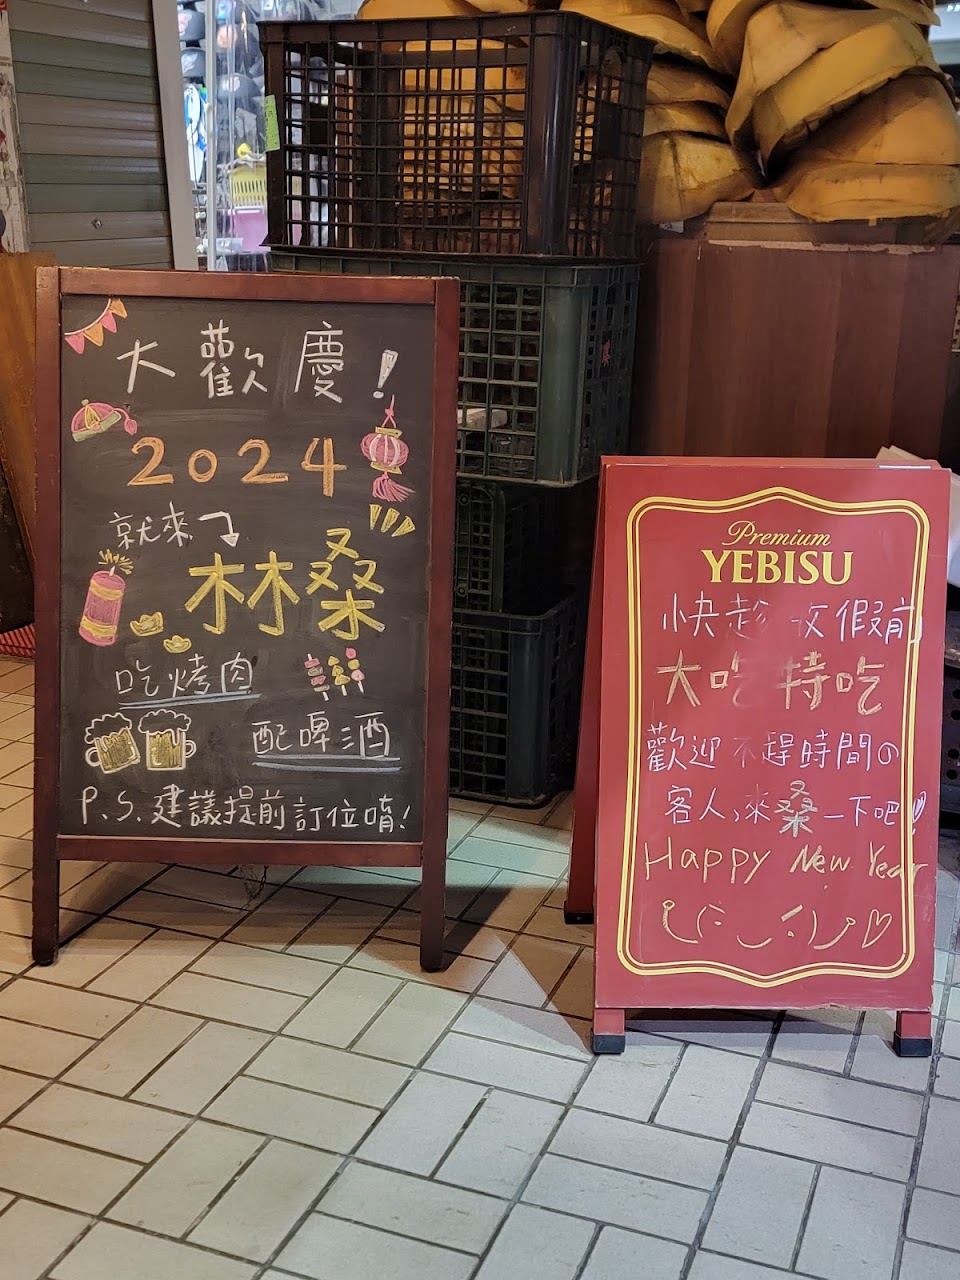 大歡慶!
2024
就來
林桑
吃烤肉
配啤酒
P.S.建議提前訂位唷!
Premium
YEBISU
快趁 收假前
大吃特吃
歡迎不趕時間の
客人,來桑一下吧
Happy New Year